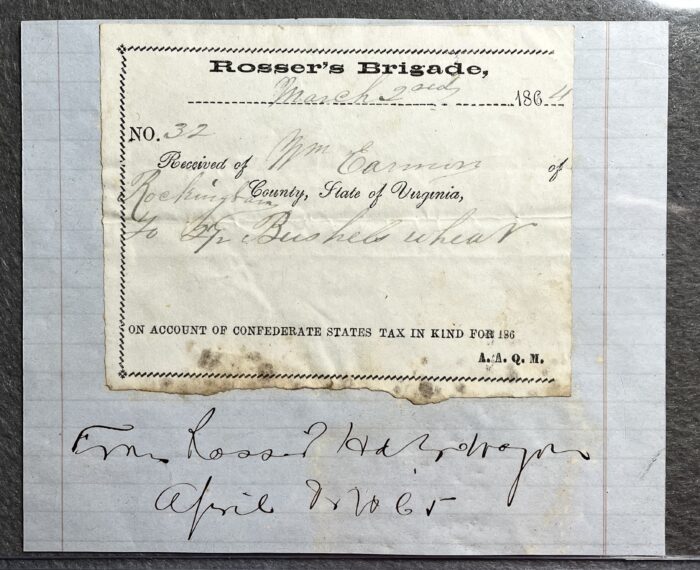 Rosser's Brigade,
March 2nd 1864
NO. 32
Received of Wm Earmon of
Rockingham County, State of Virginia,
Bushels wheat
ON ACCOUNT OF CONFEDERATE STATES TAX IN KIND FOR 186
A. A. Q. M.
From Rosser
April 65